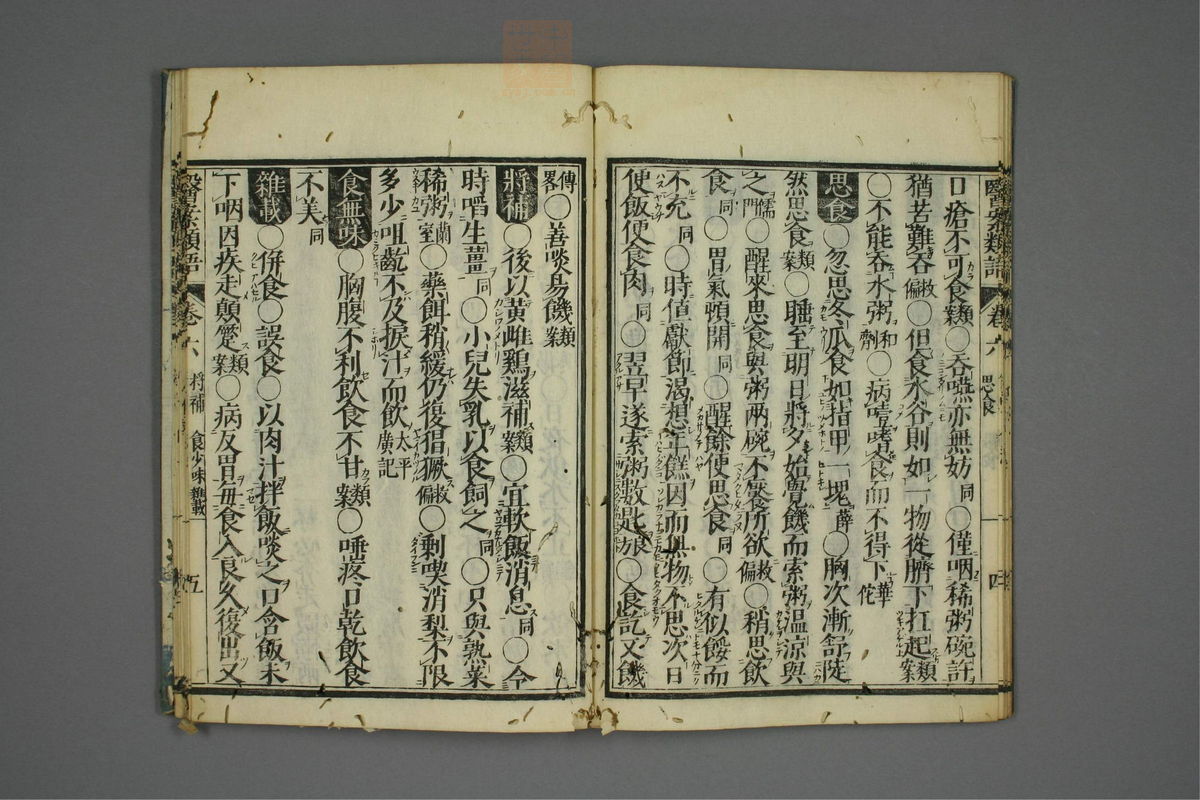 口瘡不可食類〇吞嚥亦無妨同〇僅咽稀粥碗許
猶苦難吞救偏〇但食水谷則如一物從臍下扛起類案
〇不能吞水粥和劑〇病噎嗜食而不得下華佗
思食〇忽思冬瓜食如指甲一塊薛〇胸次漸舒陡
然思食類案〇睡至明日將夕始覺饑而索粥溫涼與
之儒門〇醒來思食與粥兩碗不饜所欲救偏〇稍思飲
食同〇胃氣頓開同〇醒餘便思食同〇有似餒而
不充同〇時值歲節渴想年饌因而無物不思次日
便飯便食肉同〇翌早遂索粥數匙旅〇食訖又饑
傳畧〇善啖易饑類案
將補〇後以黃雌鷄滋補類案〇宜軟飯消息同〇令
時嚼生薑同〇小兒失乳以食飼之同〇只與熟菜
稀粥蘭室〇藥餌稍緩仍復猖獗救偏〇剩喫消梨不限
多少咀齕不及捩汁而飲太平廣記
食無味〇胸腹不利飲食不甘類案〇唾疼口乾飲食
不美同
雜載〇併食〇誤食〇以肉汁拌飯啖之口含飯未
下咽因疾走顛躓類案〇病反胃每食入食久復出又
醫案類語 卷六 思食 四
醫案類語 卷六 將補 食少味 雜載 五